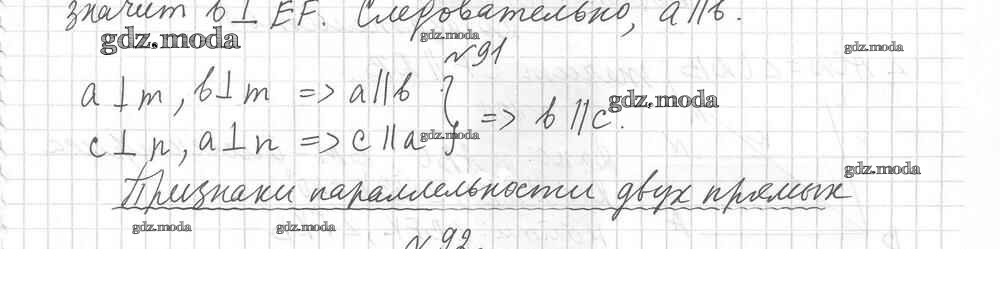 значит b⊥EF. Следовательно, a∥b.
gdz.moda gdz.moda gdz.moda
№91
a⊥m, b⊥m => a∥b
} => b∥c. gdz.moda
c⊥n, a⊥n => c∥a gdz.moda
gdz.moda
Признаки параллельности двух прямых
gdz.moda gdz.moda
№92.